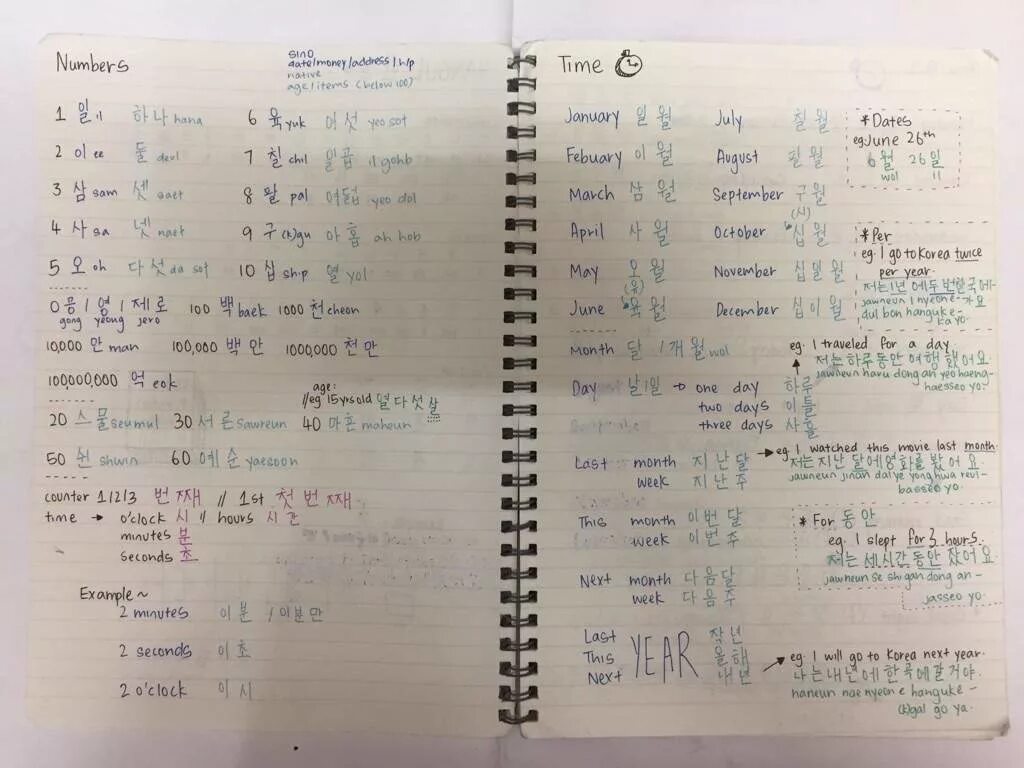 Numbers
sino
date/money/address/h/p
native
age/items (below 100)
1 일 il 하나 hana 6 육 yuk 여섯 yeo sot
2 이 ee 둘 deul 7 칠 chil 일곱 il gohb
3 삼 sam 셋 saet 8 팔 pal 여덟 yeo dol
4 사 sa 넷 naet 9 구 (k)gu 아홉 ah hob
5 오 oh 다섯 da sot 10 십 ship 열 yol
0 / 영 / 제로 100 백 baek 1000 천 cheon
gong yeong jero
10,000 만 man 100,000 백만 1000,000 천만
100,000,000 억 eok
age:
//eg 15 yrs old 열다섯 살
20 스물 seumul 30 서른 sawreun 40 마흔 maheun
50 쉰 shwin 60 예순 yaesoon
counter 1/2/3 번째 // 1st 첫 번째
time → o'clock 시 // hours 시간
minutes 분
seconds 초
Example ~
2 minutes 이분 / 이분만
2 seconds 이초
2 o'clock 이시
Time
January 일월 July 칠월
Febuary 이월 August 팔월
March 삼월 September 구월
April 사월 October (시) 십월
May 오월 November 십일월
June (유) 육월 December 십이월
* Dates
eg June 26th
6월 26일
wol il
* Per
eg. I go to Korea twice
per year.
저는 1년에 두 번 한국에
가요
jawneun 1 nyeone-
dul bon hanguke-
ka yo.
Month 달 / 개월 wol
Day 날/일 → one day 하루
two days 이틀
three days 사흘
eg. I traveled for a day.
저는 하루 동안 여행 했어요
jawneun haru dong an yeo haeng-
haesseo yo.
Last month 지난달
week 지난주
eg. I watched this movie last month.
저는 지난 달에 영화를 봤어요.
jawneun jinan dal ye yong hwa reul-
basseo yo.
This month 이번 달
week 이번 주
Next month 다음달
week 다음주
* For 동안
eg. I slept for 3 hours.
저는 세시간 동안 잤어요
jawneun se shi gan dong an-
jasseo yo.
Last 작년
This YEAR 올해
Next 내년
eg. I will go to Korea next year.
나는 내년에 한국에 갈 거야.
naneun nae nyeon e hanguke-
(k)gal go ya.